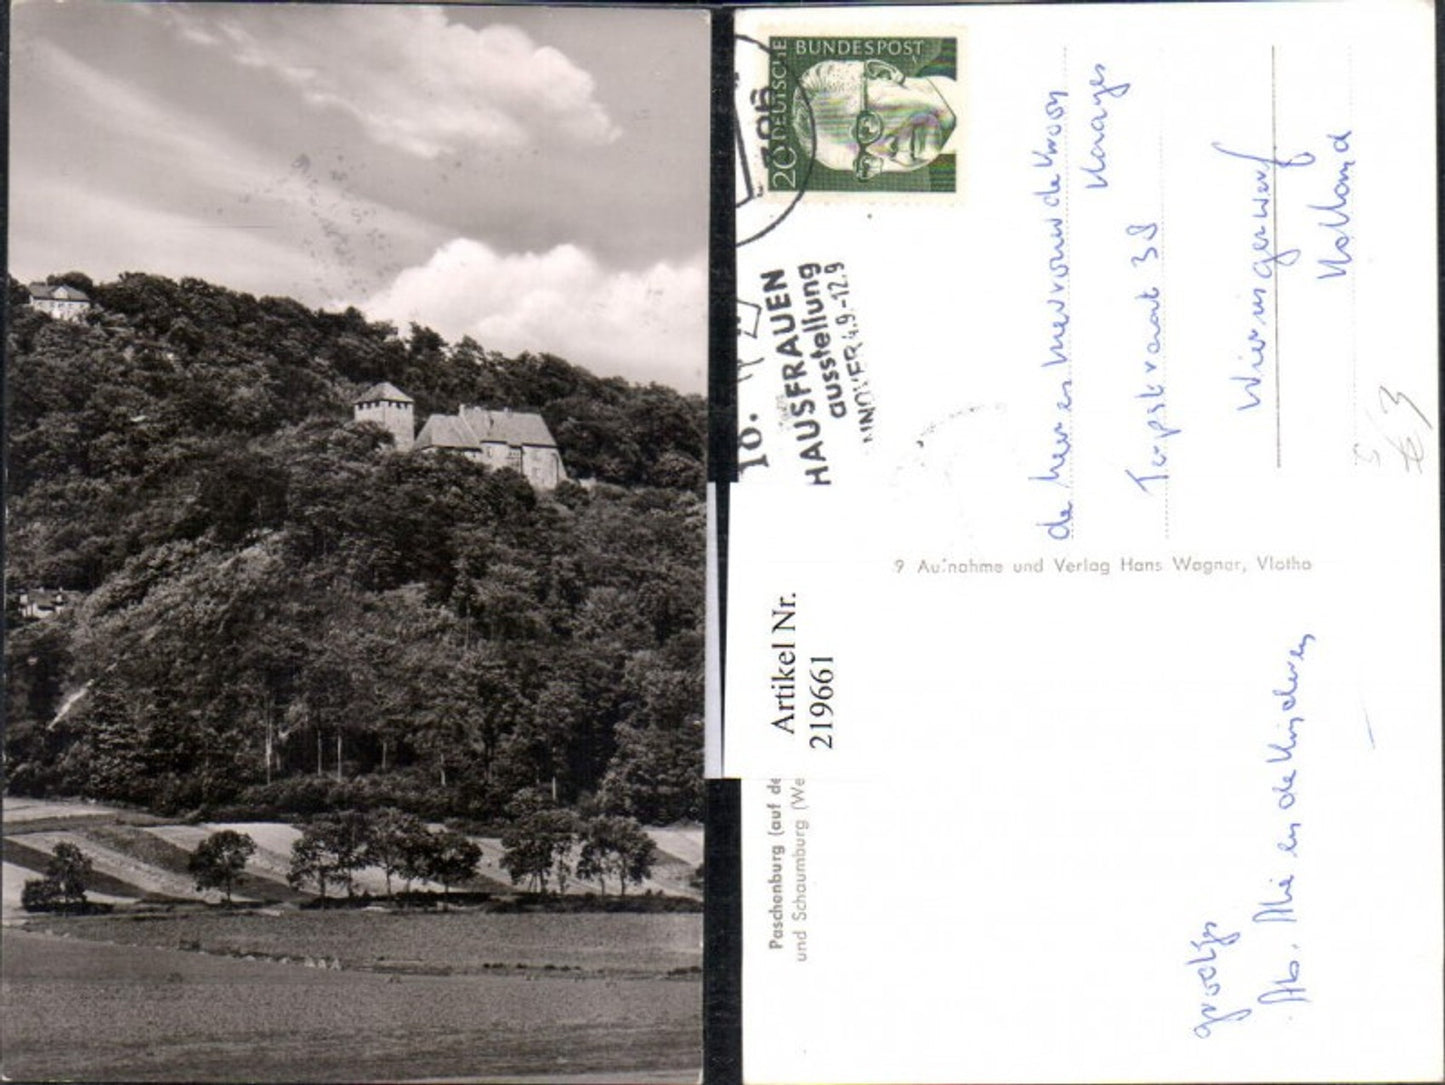 DEUTSCHE
BUNDESPOST
20
HAUSFRAUEN
ausstellung
NNOVER 4.9.-12.9
10.
Artikel Nr.
219661
Paschenburg (auf de
und Schaumburg (We
9 Aufnahme und Verlag Hans Wagner, Vlotho
de Heer en Mevrouw de Kroon
Terpstraat 38
Wieringerwerf
Holland
groetjes
en de Kinderen
€3